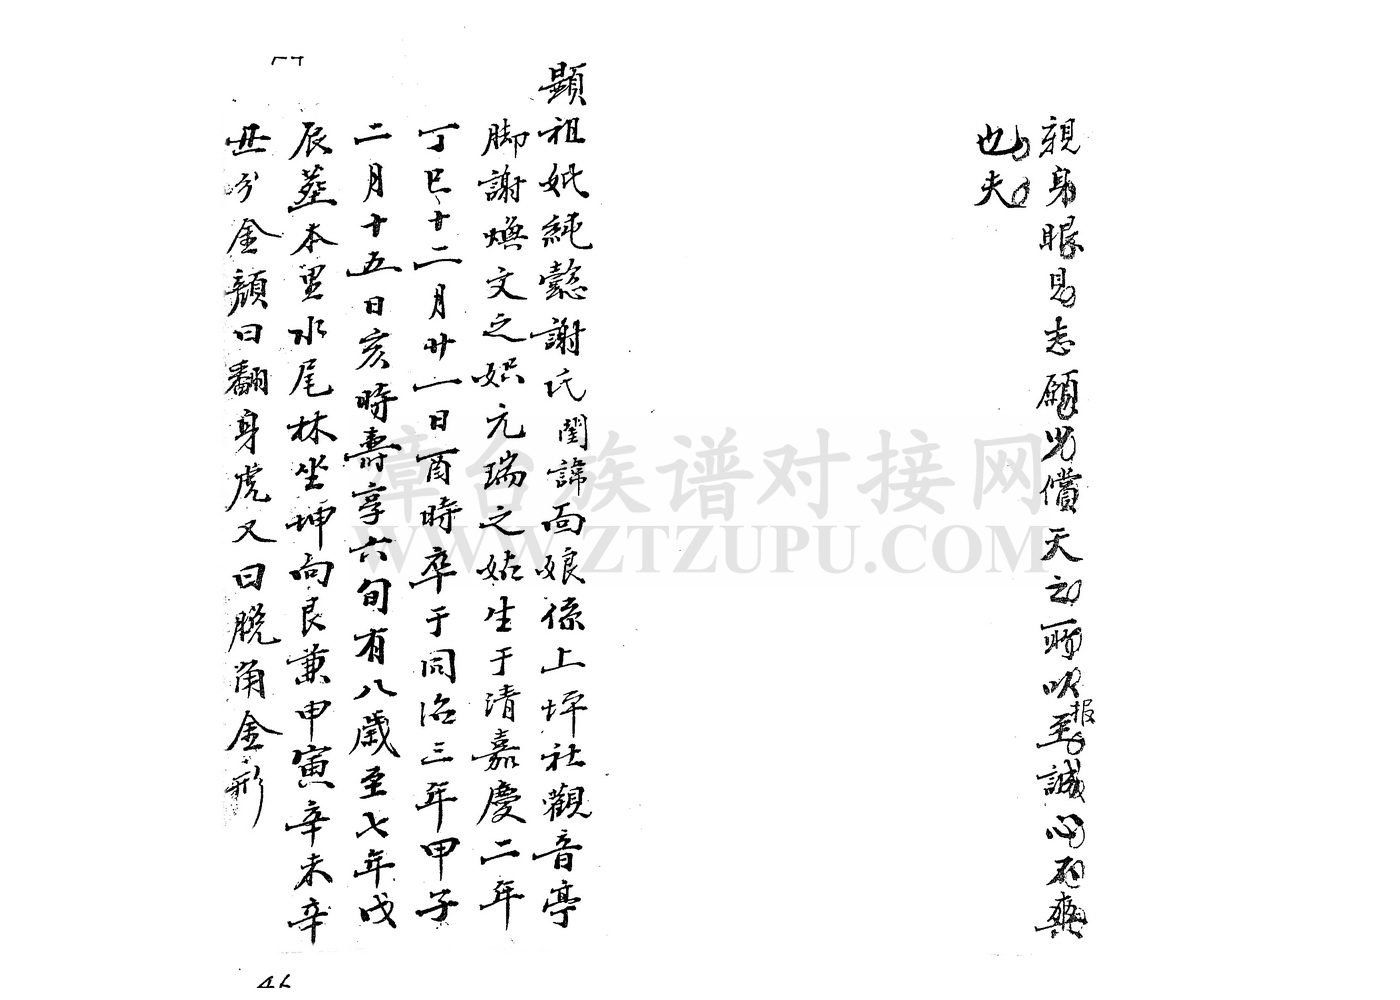 親身眼見志願必償天之所以报至誠心不爽
也夫
顯祖妣純懿謝氏閨諱面娘係上坪社觀音亭
脚謝煥文之媳元瑞之姑生于清嘉慶二年
丁巳十二月廿一日酉時卒于同治三年甲子
二月十五日亥時壽享六旬有八歲至七年戊
辰塟本里水尾林坐坤向艮兼申寅辛未辛
丑分金顔曰翻身虎又曰脫角金形
46
章台族谱对接网
WWW.ZTZUPU.COM